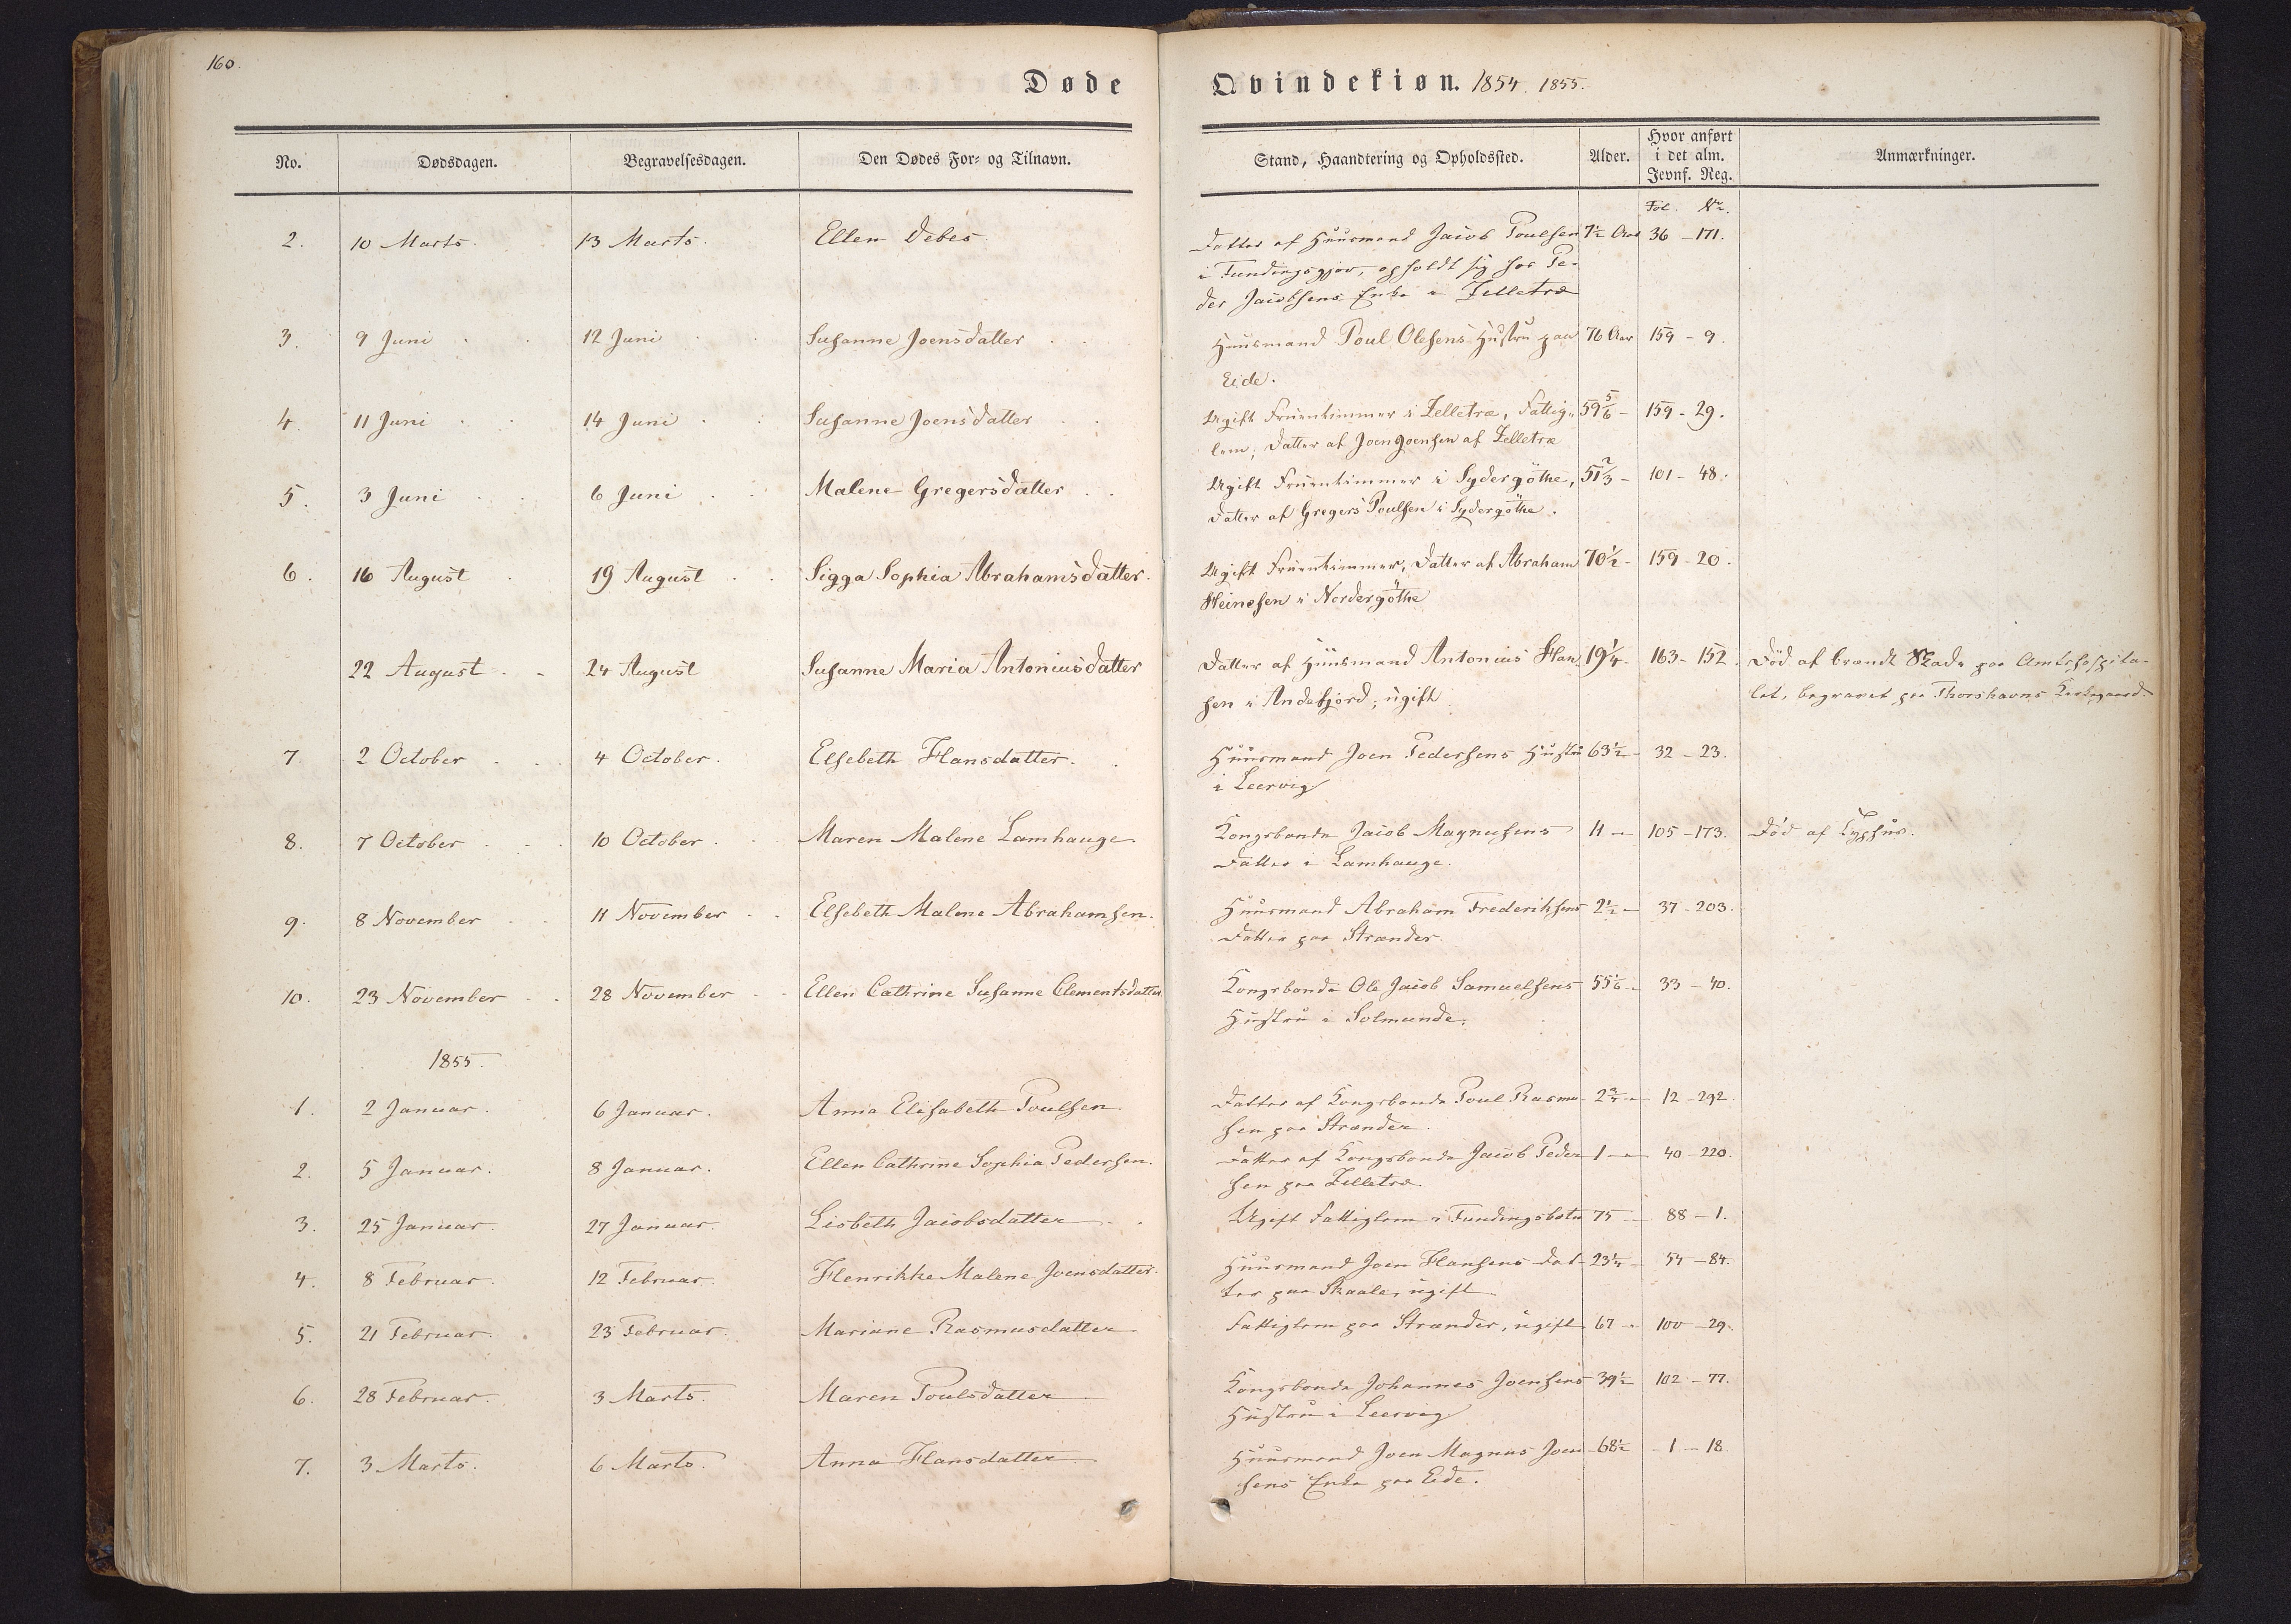 160.
Døde
Qvindekiøn. 1854. 1855.
No.
Dødsdagen.
Begravelsesdagen.
Den Dødes For- og Tilnavn.
Stand, Haandtering og Opholdssted.
Alder.
Hvor anført
i det alm.
Jevnf. Reg.
Anmærkninger.
Fol. Nr.
2. 10 Marts. 13 Marts. Ellen Debes Datter af Huusmand Jacob Poulsen 7½ Aar 36 - 171.
i Fundingsgjov, opholdt sig hos Pe-
der Jacobsens Enke i Zelletræ
3. 9 Juni 12 Juni Susanne Joensdatter Huusmand Poul Olesens Hustru paa 76 Aar 159 - 9.
Eide.
4. 11 Juni 14 Juni Susanne Joensdatter Ugift Fruentimmer i Zelletræ, Fattig- 59 5/6 - 159 - 29.
lem, Datter af Joen Joensen af Zelletræ
5. 3 Juni 6 Juni Malene Gregersdatter Ugift Fruentimmer i Sydergøthe, 51 2/3 - 101 - 48.
Datter af Gregers Poulsen i Sydergøthe.
6. 16 August 19 August Sigga Sophia Abrahamsdatter. Ugift Fruentimmer, Datter af Abraham 70½ - 159 - 20.
Heinesen i Nordergøthe
22 August 24 August Susanne Maria Antoniusdatter Datter af Huusmand Antonius Han- 19¼ - 163 - 152. Død af brændt Skade paa Amtshospita-
sen i Andefjord, ugift let, begravet paa Thorshavns Kirkegaard.
7. 2 October 4 October. Elsebeth Hansdatter. Huusmand Joen Pedersens Hustru 63½ - 32 - 23.
i Leervig
8. 7 October 10 October. Maren Malene Lamhauge Kongsbonde Jacob Magnusens 11 - 105 - 173. Død af Typhus.
Datter i Lamhauge.
9. 8 November 11 November Elsebeth Malene Abrahamsen. Huusmand Abraham Frederiksens 2½ - 37 - 203.
Datter paa Strænder.
10. 23 November 28 November Ellen Cathrine Susanne Clementsdatter Kongsbonde Ole Jacob Samuelsens 55 1/6 - 33 - 40.
Hustru i Solmunde.
1855.
1. 2 Januar. 6 Januar. Anna Elisabeth Poulsen Datter af Kongsbonde Poul Rasmu- 2¾ - 12 - 292.
sen paa Strænder.
2. 5 Januar. 8 Januar. Ellen Cathrine Sophia Pedersen. Datter af Kongsbonde Jacob Peder- 1 - 40 - 220.
sen paa Zelletræ
3. 25 Januar. 27 Januar. Lisbeth Jacobsdatter Ugift Fattiglem i Fundingsbotn 75 - 88 - 1.
4. 8 Februar. 12 Februar. Henrikke Malene Joensdatter. Huusmand Joen Hansens Dat- 23¼ - 54 - 84.
ter paa Skaale, ugift
5. 21 Februar. 23 Februar. Mariane Rasmusdatter Fattiglem paa Strænder, ugift 67 - 100 - 29.
6. 28 Februar. 3 Marts. Maren Poulsdatter Kongsbonde Johannes Joensens 39½ 102 - 77.
Hustru i Leervig
7. 3 Marts. 6 Marts. Anna Hansdatter Huusmand Joen Magnus Joen- 68½ - 1 - 18.
sens Enke paa Eide.